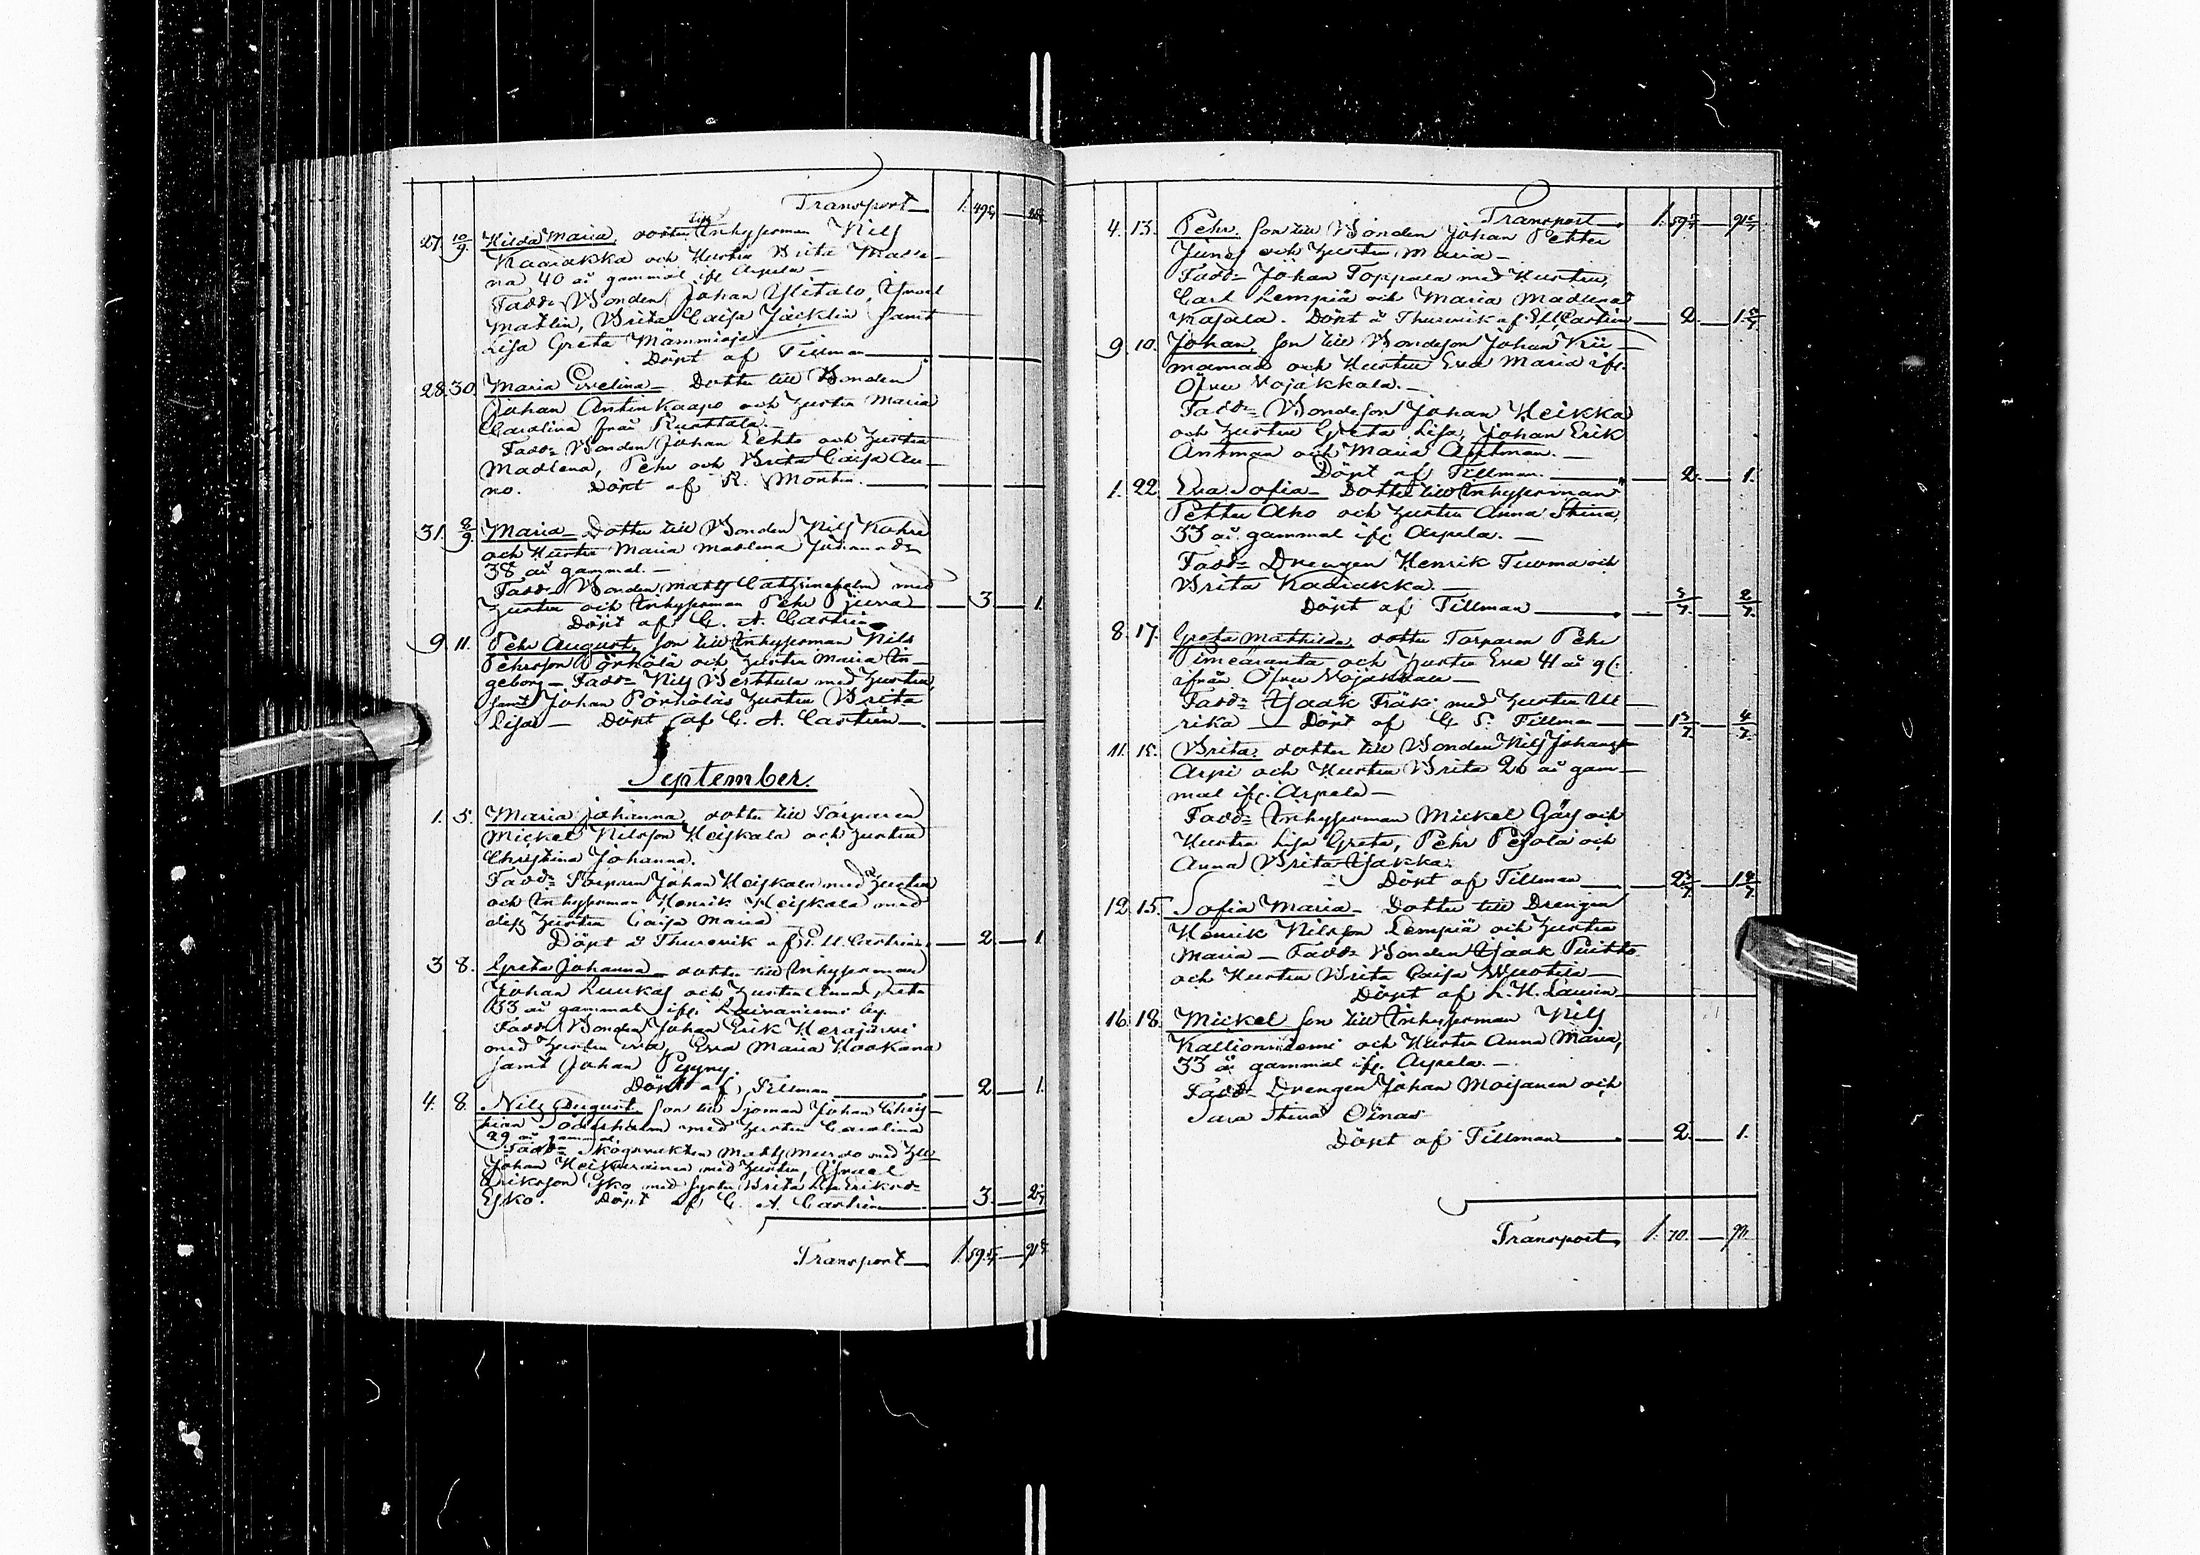 Transport 1. 49
27. 10/9. Hilda Maria, dotter till Inhysesman Nils
Kaaiakka och Hustru Brita Madle-
na 40 år gammal ifr Arpela
Fadd: Bonden Johan Ylitalo, Isak
Matlin, Brita Caisa Jäcklin samt
Lisa Greta
Döpt af Tillman
28. 30. Maria Evelina Dotter till Bonden
Johan Antinkaapo och hustru Maria
Carolina från
Fadd: Bonden Johan Lehto och hustru
Madlena, Pehr och Brita Caisa Au-
no. Döpt af R. Montin.
31. 8/9. Maria Dotter till Bonden Nils
och Hustru Maria Madlena Johansdr
38 år gammal.
Fadd: Bonden Mats med
hustru och Inhysesman Pehr Juna 3 1.
Döpt af C. A. Castrén
9. 11. Pehr August, son till Inhysesman Nils
Pehrsson Pörhölä och hustru Maria In-
geborg Fadd: Nils Perttula med hustru,
samt Johan Pörhöläs hustru Brita
Lisa Döpt af C. A. Castrén
September.
1. 5. Maria Johanna, dotter till Torparen
Mickel Nilsson Heiskala och hustru
Christina Johanna.
Fadd: Torparn Johan Heiskala med hustru
och Inhysesman Henrik Heiskala med
dess hustru Caisa Maria
Döpt å Thurevik af Castrén. 2. 1.
3 8. Greta Johanna dotter till Inhysesman
Johan Luukas och hustru Anna Greta
33 år gammal ifr. Laivaniemi by.
Fadd: Bonden Johan Erik Herajärvi
med hustru Eva Maria Hookana
samt Johan Pyyny.
Döpt af Tillman 2 1.
4. 8. Nils August, son till Sjöman Johan Chris-
tian Söderholm med hustru Carolina
29 år gammal.
Fadd: Skogsvakten Mats Murso med hu
Johan Heiskarainen med hustru, Isak
Eriksson Esko med syster Brita Lisa Eriksdr
Esko. Döpt af C. A. Castrén 3. 2
Transport 1. 59
Transport 1. 59
4. 13. Pehr, son till Bonden Johan Petter
Junes och hustru Maria
Fadd: Johan Toppala med Hustru,
Carl Lempiä och Maria Madlena
Kajala. Döpt å Thurevik af Castrén 2 1
9. 10. Johan, son till Bondeson Johan Kii-
mamaa och Hustru Eva Maria ifr.
Öfre Vojakkala.
Fadd: Bondeson Johan Heikka
och hustru Greta Lisa, Johan Erik
Antman och Maria Antman.
Döpt af Tillman. 2. 1.
1. 22. Eva Sofia Dotter till Inhysesman
Petter Aho och hustru Anna Stina,
33 år gammal ifr. Arpela.
Fadd: Drengen Henrik Tuoma och
Brita Kaaiakka.
Döpt af Tillman 5/7. 2/7.
8. 17. Greta Mathilda, dotter Torparen Pehr
Pimeäranta och Hustru Eva 41 år gl:
ifrån Öfre Vojakkala
Fadd: Isaak Träk med hustru Ul-
rika Döpt af C S. Tillman 1 4/7
11. 15. Brita, dotter till Bonden Nils Johansson
Arpi och Hustru Brita 26 år gam-
mal ifr. Arpela
Fadd: Inhysesman Mickel Gås och
Hustru Lisa Greta, Pehr Pesola och
Anna Brita Isakka.
Döpt af Tillman 2 1
12. 15. Sofia Maria Dotter till Drengen
Henrik Nilsson Lempiä och hustru
Maria Fadd: Bonden Isaak Puikko
och Hustru Brita Caisa
Döpt af L. H. Laurin
16. 18. Mickel son till Inhysesman Nils
Kallionniemi och Hustru Anna Maria,
33 år gammal ifr. Arpela.
Fadd: Drengen Johan Moisanen och
Sara Stina Oinas
Döpt af Tillman 2. 1.
Transport 1. 70.